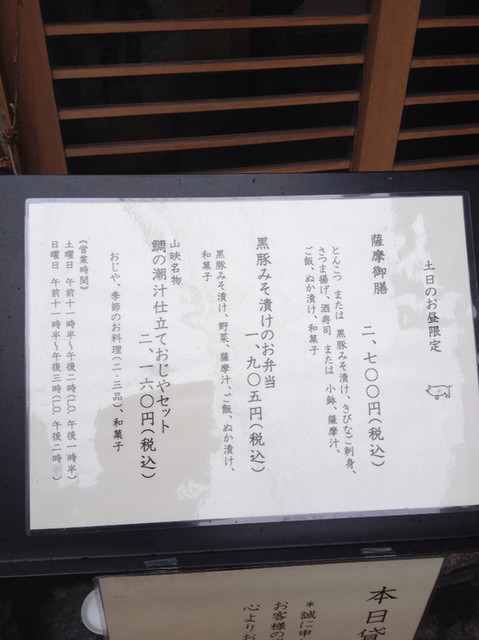 土日のお昼限定
薩摩御膳　二、七〇〇円(税込)
とんこつ　または　黒豚みそ漬け、きびなご刺身、
さつま揚げ、酒寿司　または　小鉢、薩摩汁、
ご飯、ぬか漬け、和菓子
黒豚みそ漬けのお弁当
一、九〇五円(税込)
黒豚みそ漬け、野菜、薩摩汁、ご飯、ぬか漬け、
和菓子
山映名物
鯛の潮汁仕立ておじやセット
二、一六〇円(税込)
おじや、季節のお料理(二・三品)、和菓子
《営業時間》
土曜日　午前十一時半～午後二時(L.O.　午後一時半)
日曜日　午前十一時半～午後三時(L.O.　午後二時)
本日貸
＊誠に申
お客様の
心よりお